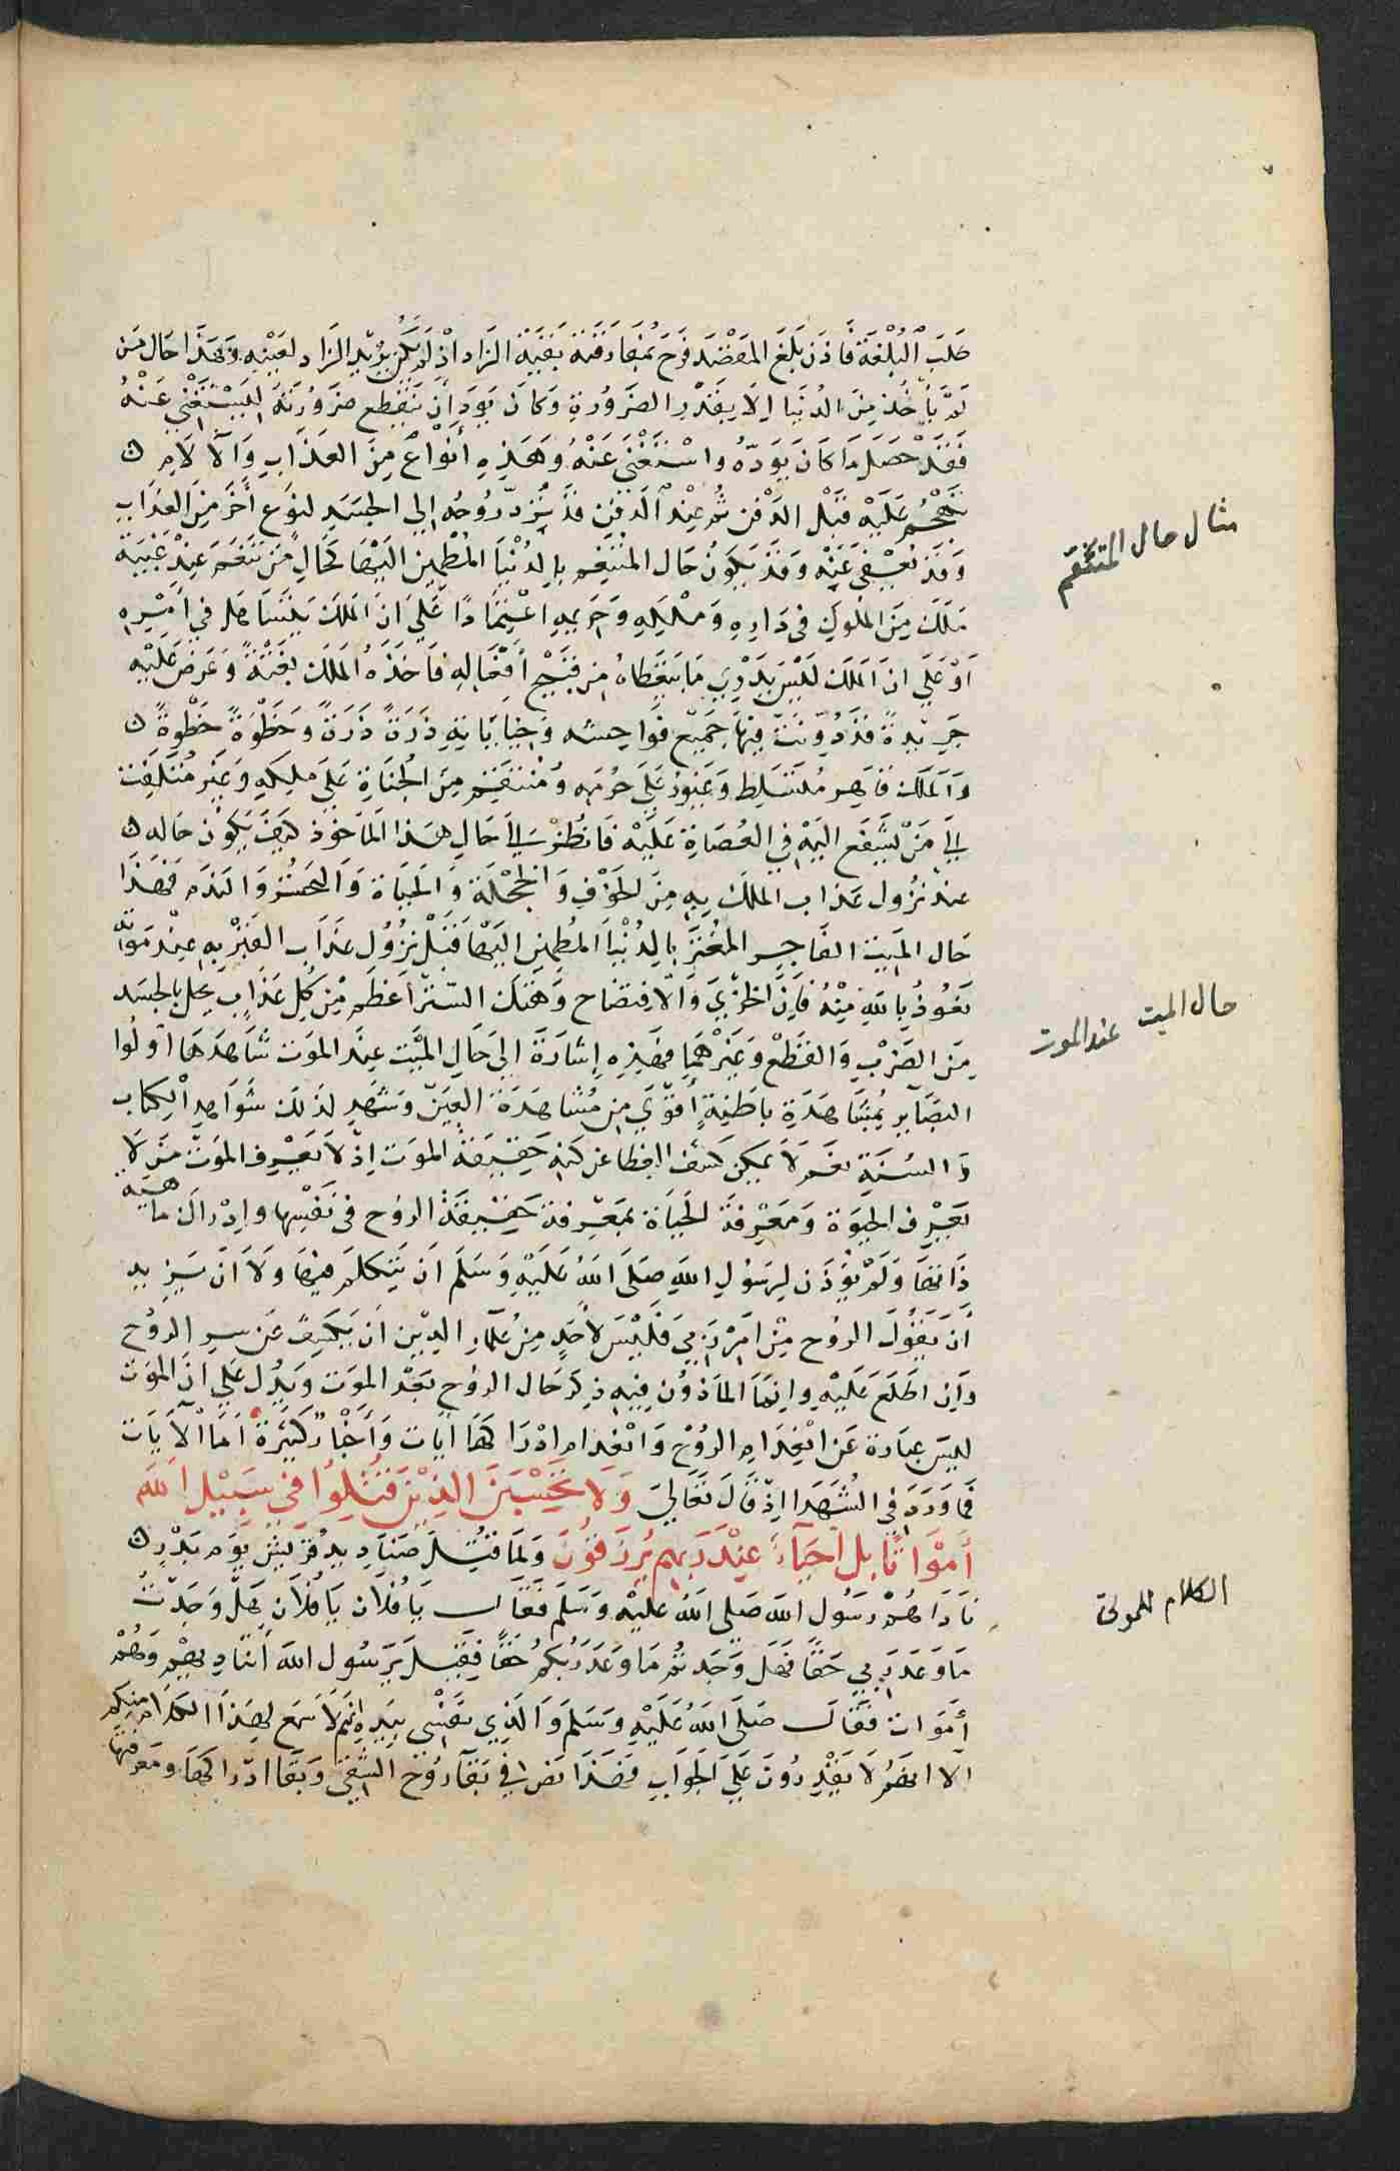 طلب البلغة فاذن بلغ المقصد فرح بمفارقته بقية الزاد اذ لم يكن يريد الزاد لعينه وهذا حال من
لم يأخذ من الدنيا الا بقدر الضرورة وكان يود ان ينقطع ضرورته ليستغنى عنه
فقد حصل ما كان يوده واستغنى عنه وهذه أنواع من العذاب والآلام
تهجم عليه قبل الدفن ثم عند الدفن قد يرد روحه الى الجسد لنوع أخر من العذاب
مثال حال المتنعّم
وقد يعفى عنه وقد يكون حال المتنعم بالدنيا المطمئن اليها كحال من تنعم عند غيبة
ملك من الملوك فى داره وملكه وحريمه اعتمادًا على ان الملك يتساهل في امره
او على ان الملك ليس يدري ما يتعطاه من قبيح أفعاله فاخذه الملك بغتةً وعرض عليه
جريدةً قد دوّنت فيها جميع فواحشه وجناياته ذرةً ذرةً وخطوةً خطوةً
والملك قاهر متسلط وغيور على حرمه ومنتقم من الجناة على ملكه وغير متلفت
الى من تشفع اليه في العصاة عليه فانظر الى حال هذا المأخوذ كيف يكون حاله
عند نزول عذاب الملك به من الخوف والخجلة والحياة والتحسّر والندم فهذا
حال الميت الفاجر المغتر بالدنيا المطمئن اليها قبل نزول عذاب القبر به عند موته
حال الميت عند الموت
نعوذ بالله منه فإن الخزي والافتضاح وهتك الستر اعظم من كل عذاب يحل بالجسد
من الضرب والقطع وغيرهما فهذه إشارة الى حال الميت عند الموت شاهدها اولوا
البصآير بمشاهدة باطنة أقوى من مشاهدة العين وشهد لذلك شواهد الكتاب
والسنة نعم لا يمكن كشف الغطا عن كنه حقيقة الموت اذ لا يعرف الموت من لا
يعرف الحيوة ومعرفة الحياة بمعرفة حقيقة الروح فى نفسها وادراك ماهية
ذاتها ولم يؤذن لرسول الله صلى الله عليه وسلم ان يتكلم فيها ولا ان يزيد
أن يقول الروح من امر ربي فليس لأحد من علمآء الدين ان يكشف عن سر الروح
وان اطلع عليه وانما المأذون فيه ذكر حال الروح بعد الموت ويدل على ان الموت
ليس عبارة عن انعدام الروح وانعدام ادراكها أيات وأخبار كثيرة اما الآيات
فما ورد فى الشهدا اذ قال تعالى ولا تحسبن الذين قتلوا في سبيل الله
أمواتًا بل أحيآء عند ربهم يرزقون ولما قتل صناديد قريش يوم بدر
الكلام للموتى
ناداهم رسول الله صلى الله عليه وسلم فقال يا فلان يا فلان هل وجدت
ما وعد ربي حقا فهل وجدتم ما وعد ربكم حقا فقيل يرسول الله أتناديهم وهم
أموات فقال صلى الله عليه وسلم والذي نفسي بيده إنهم لأسمع لهذا الكلام منكم
الا انهم لا يقدرون على الجواب فهذا نص في بقآ روح الشقي وبقا ادراكها ومعرفتها